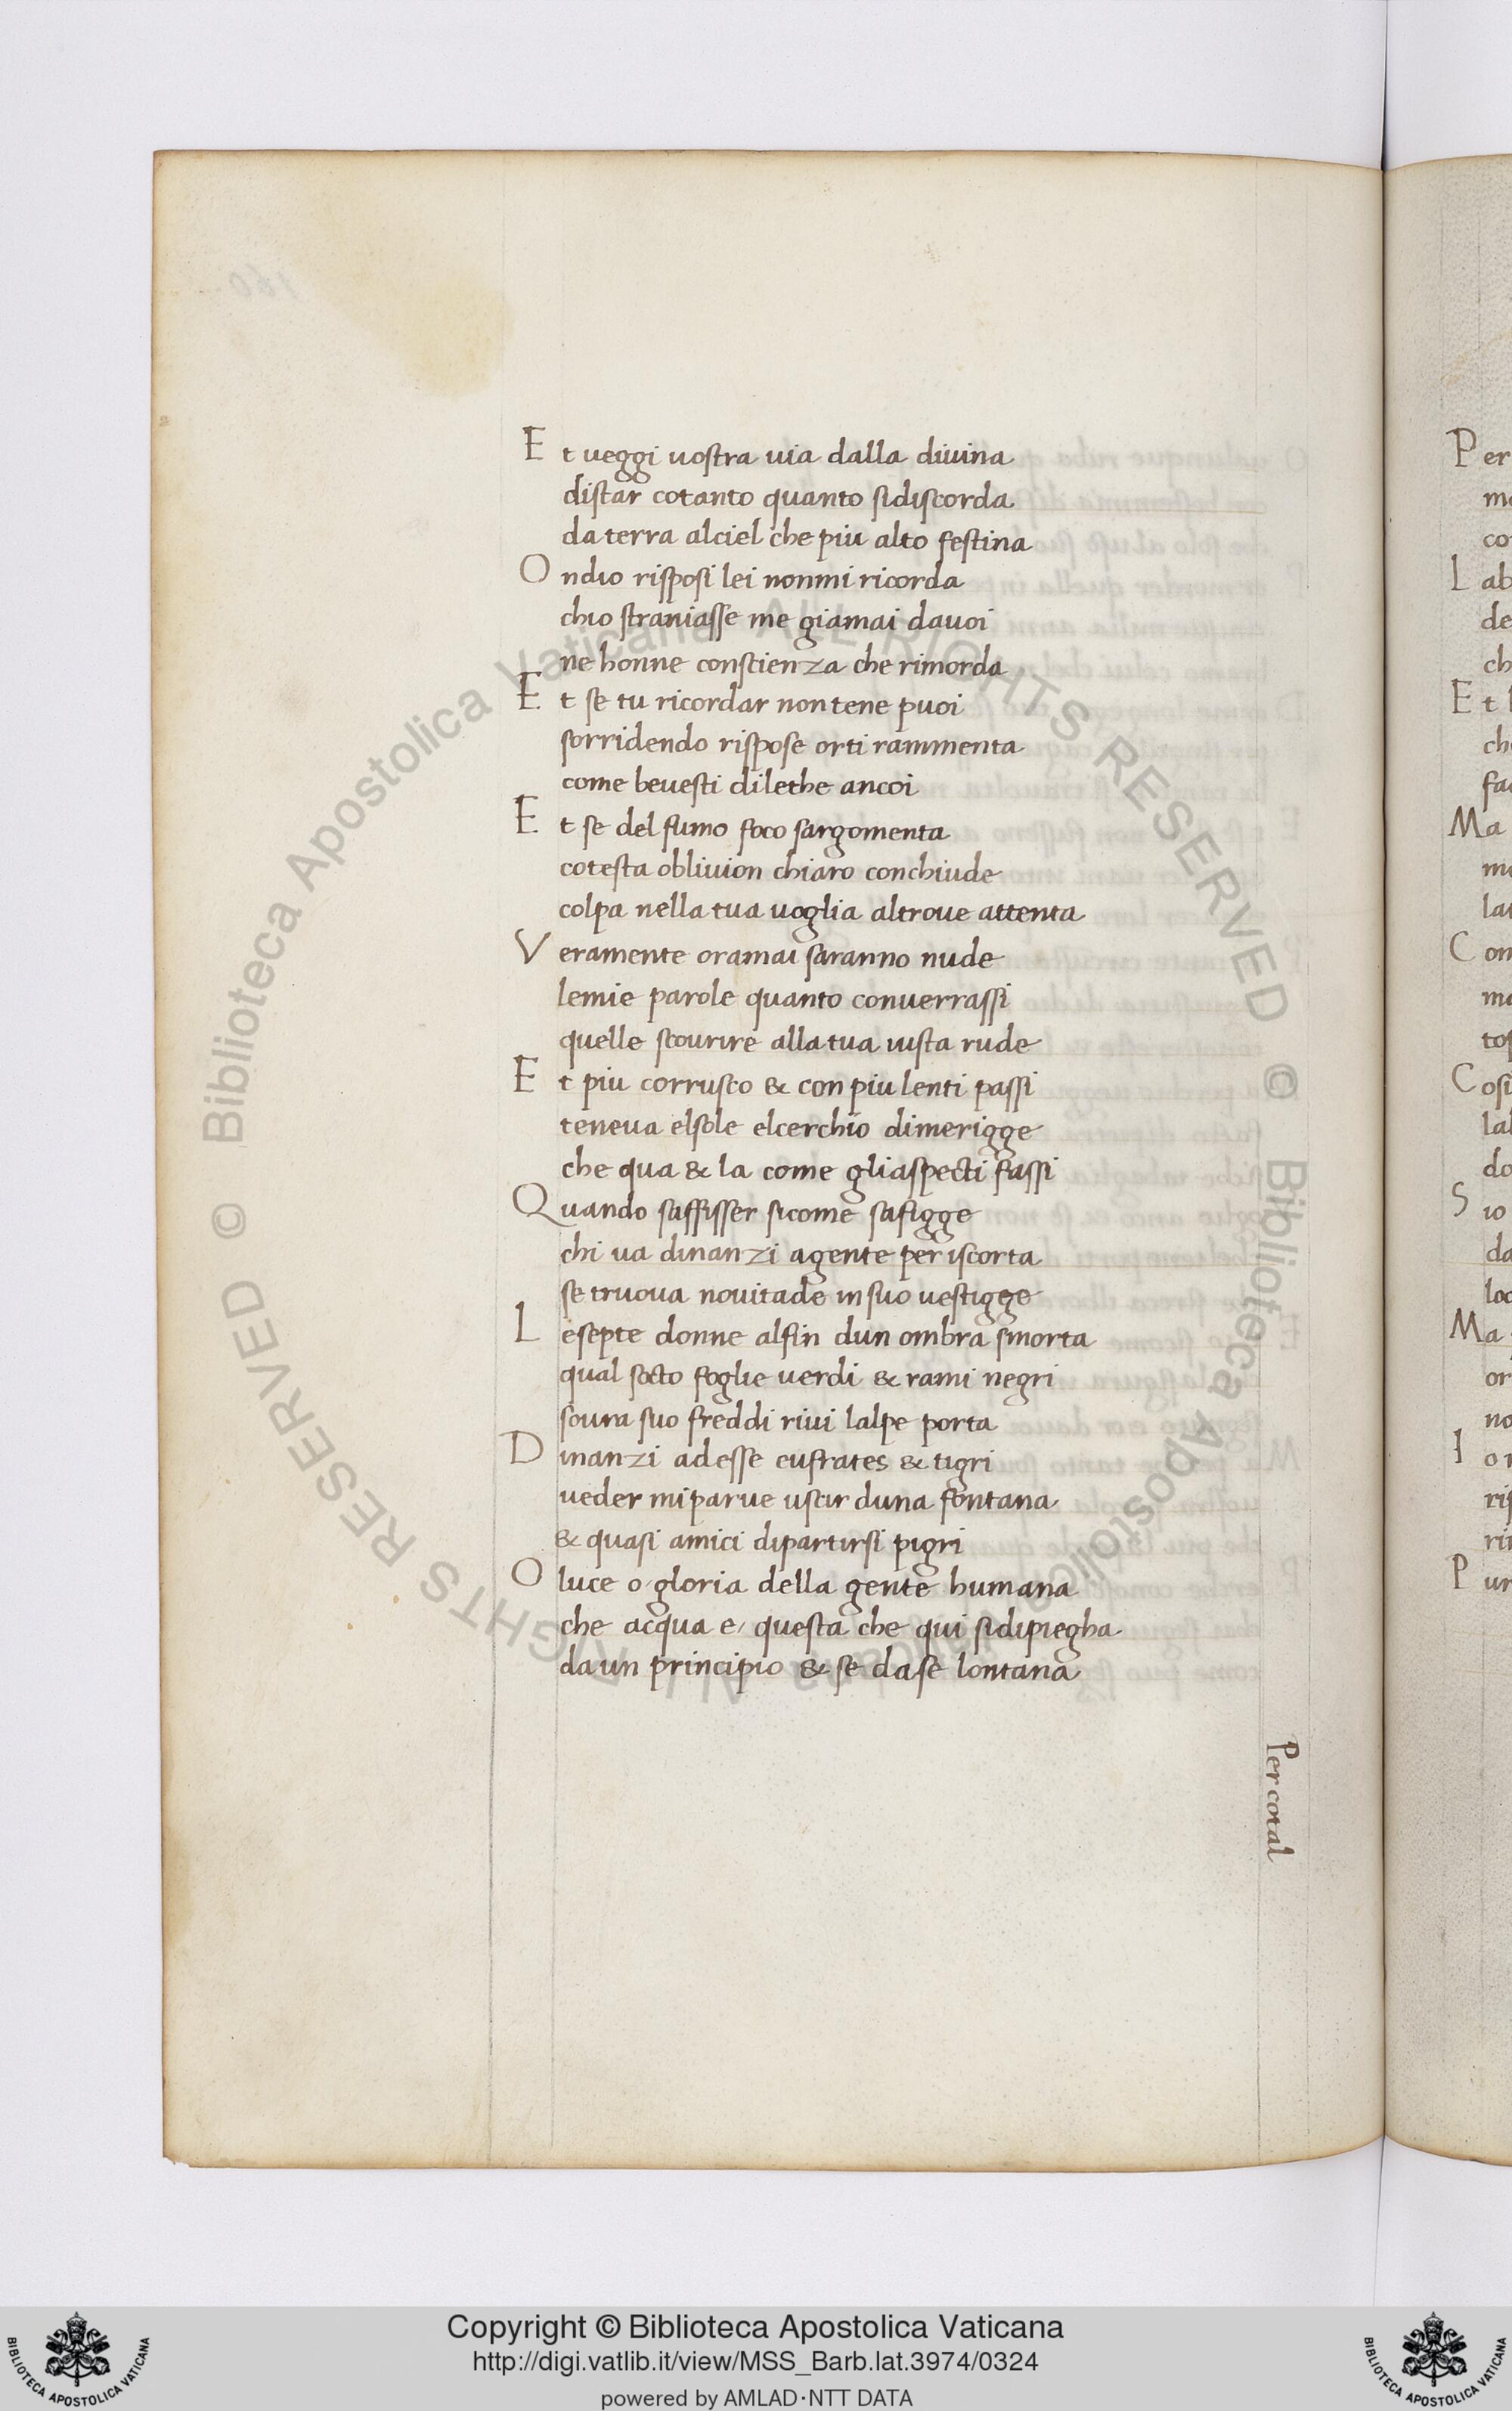 Et ueggi uostra uia dalla diuina
distar cotanto quanto sidiscorda
da terra alciel che piu alto festina
Ondio risposi lei nonmi ricorda
chio straniasse me giamai dauoi
ne honne conscienza che rimorda
Et se tu ricordar non tene puoi
sorridendo rispose orti rammenta
come beuesti dilethe ancoi
Et se del fumo foco sargomenta
cotesta obliuion chiaro conchiude
colpa nella tua uoglia altroue attenta
Veramente oramai saranno nude
lemie parole quanto conuerrassi
quelle scourire alla tua uista rude
Et piu corrusco & con piu lenti passi
teneua elsole elcerchio dimerigge
che qua & la come gliaspecti fassi
Quando saffisser sicome safigge
chi ua dinanzi agente per iscorta
se truoua nouitade in suo uestigge
Lesepte donne alfin dun ombra smorta
qual socto foglie uerdi & rami negri
soura suo freddi riui lalpe porta
Dinanzi adesse eufrates & tigri
ueder mi parue uscir duna fontana
& quasi amici dipartirsi pigri
O luce o gloria della gente humana
che acqua e questa che qui sidipiegha
da un principio & se dase lontana
Per cotal
Per
L ab
de
ch
Et
Ma
C on
C osi
S io
Ma
or
no
I
P ur
© Biblioteca Apostolica Vaticana ALL RIGHTS RESERVED © Biblioteca Apostolica Vaticana ALL RIGHTS RESERVED
Copyright © Biblioteca Apostolica Vaticana
http://digi.vatlib.it/view/MSS_Barb.lat.3974/0324
powered by AMLAD·NTT DATA
BIBLIOTECA APOSTOLICA VATICANA
BIBLIOTECA APOSTOLICA VATICANA